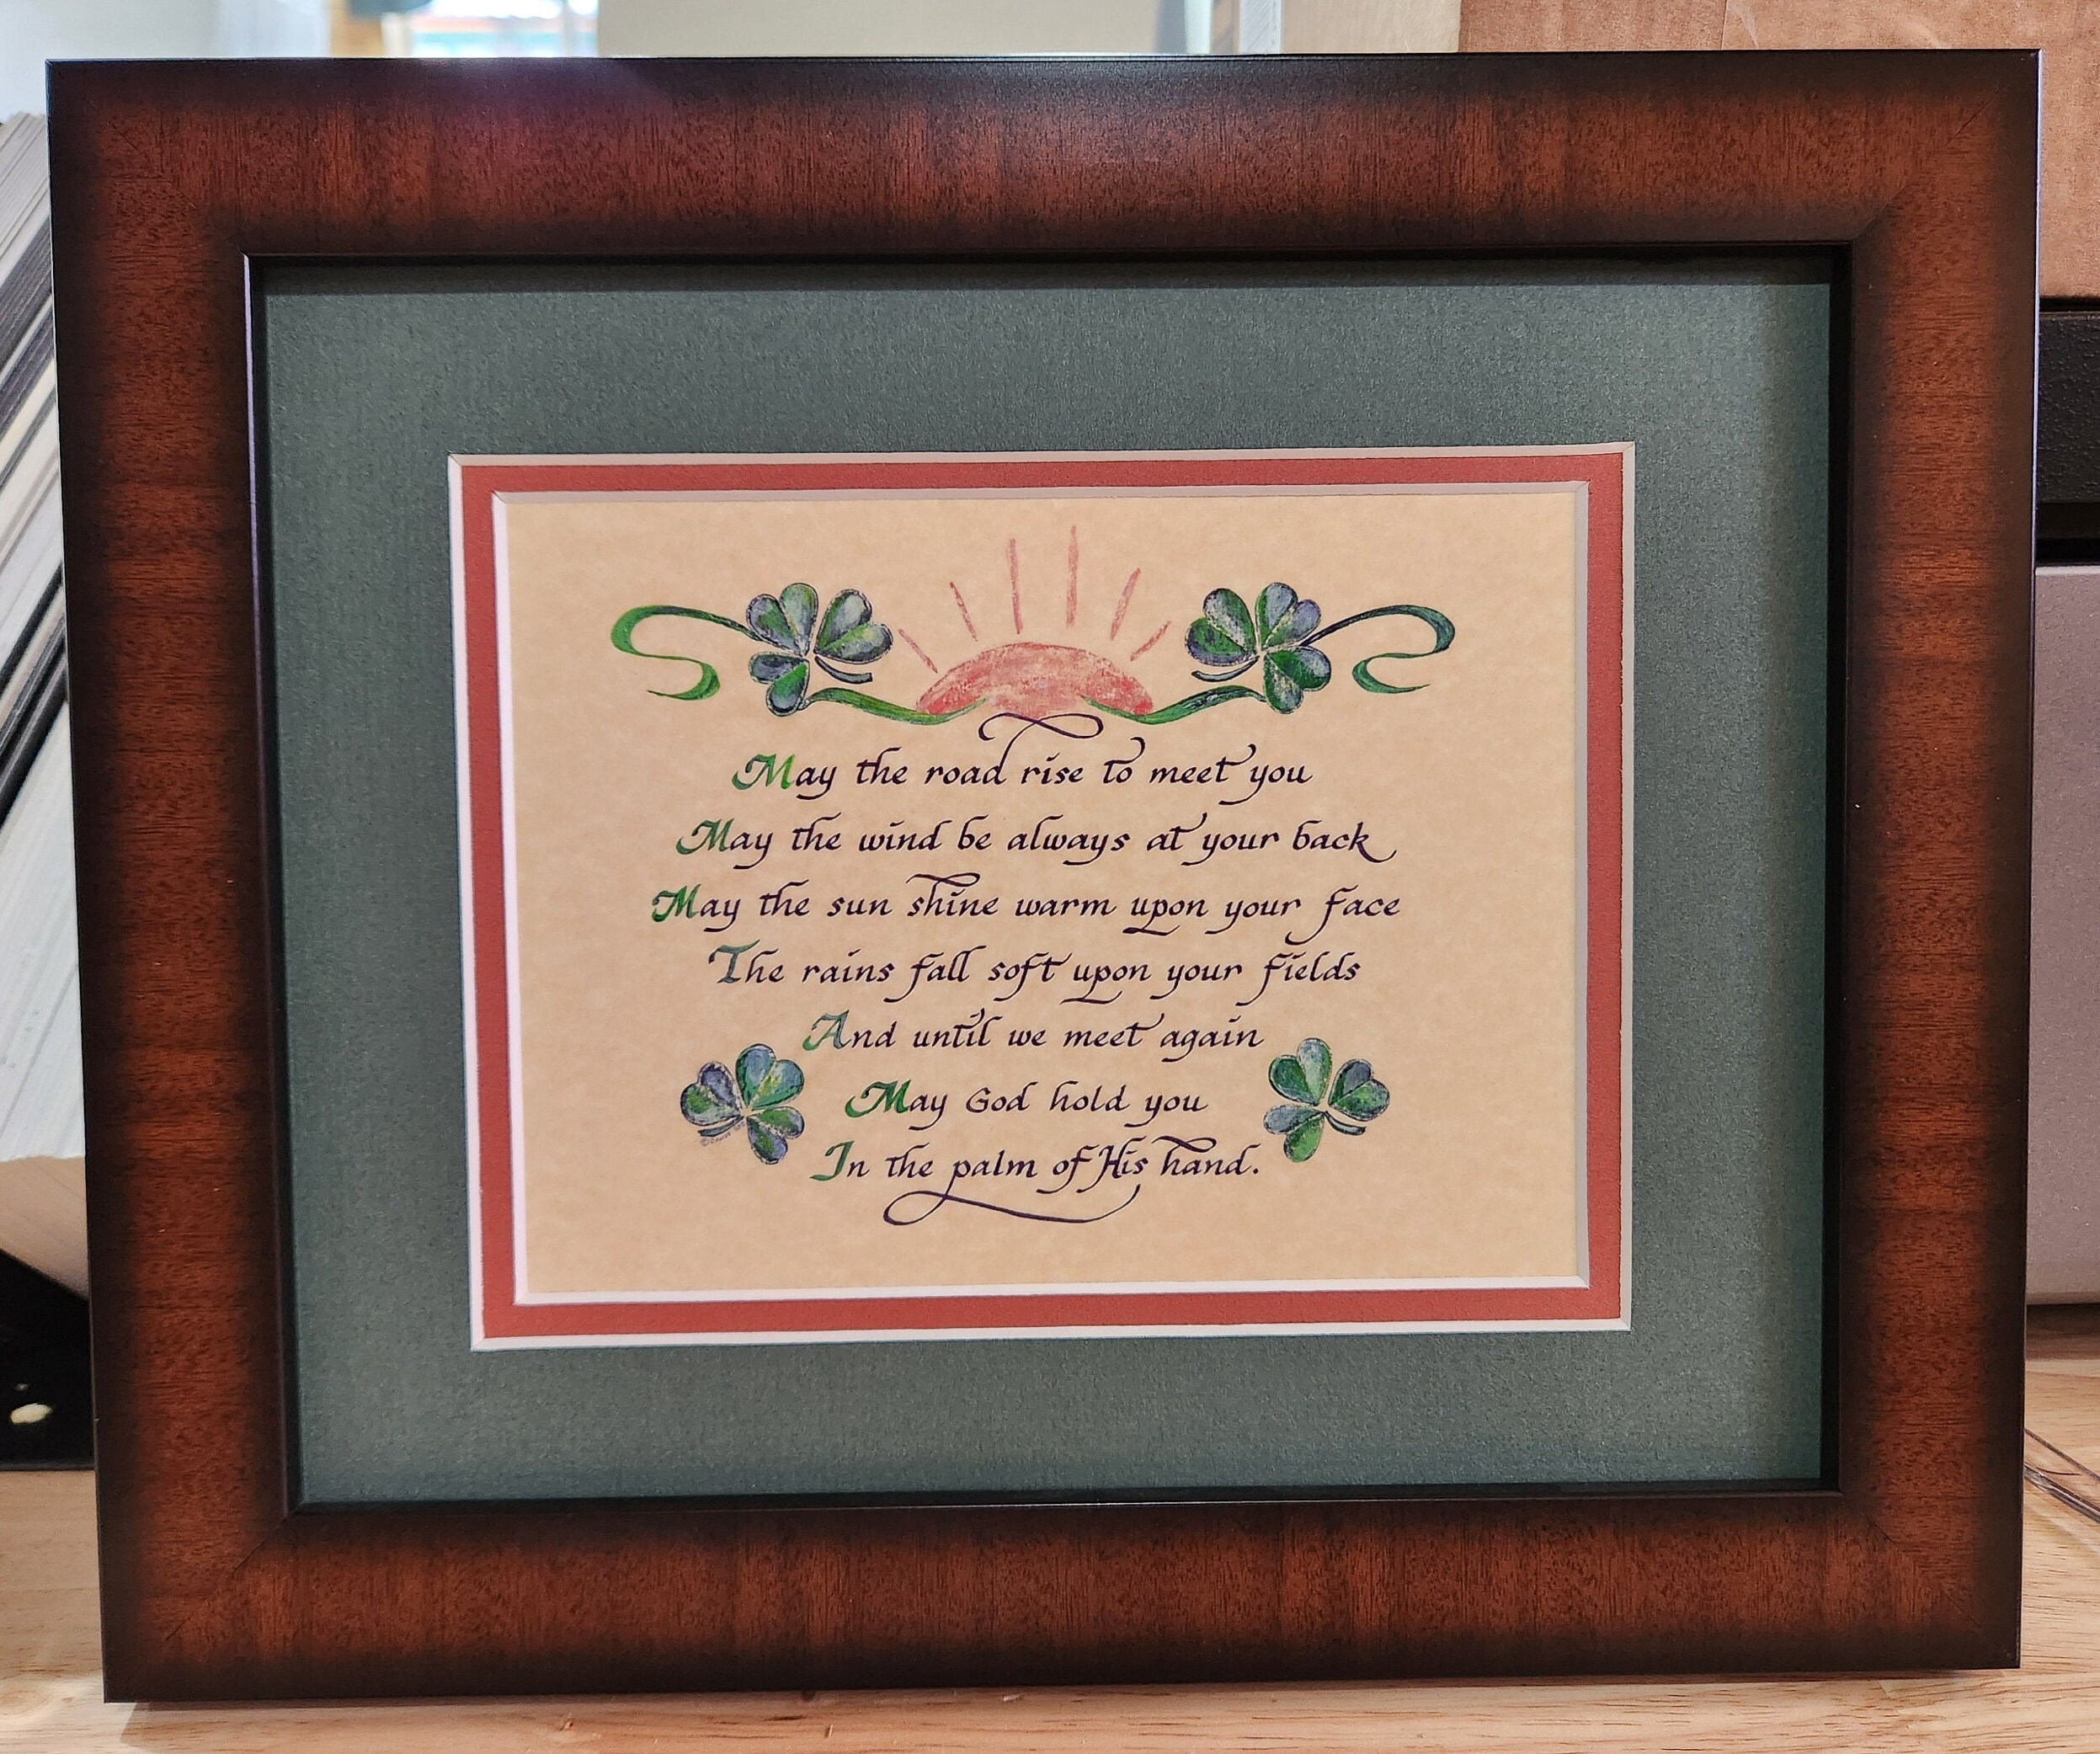 May the road rise to meet you
May the wind be always at your back
May the sun shine warm upon your face
The rains fall soft upon your fields
And until we meet again
May God hold you
In the palm of His hand.